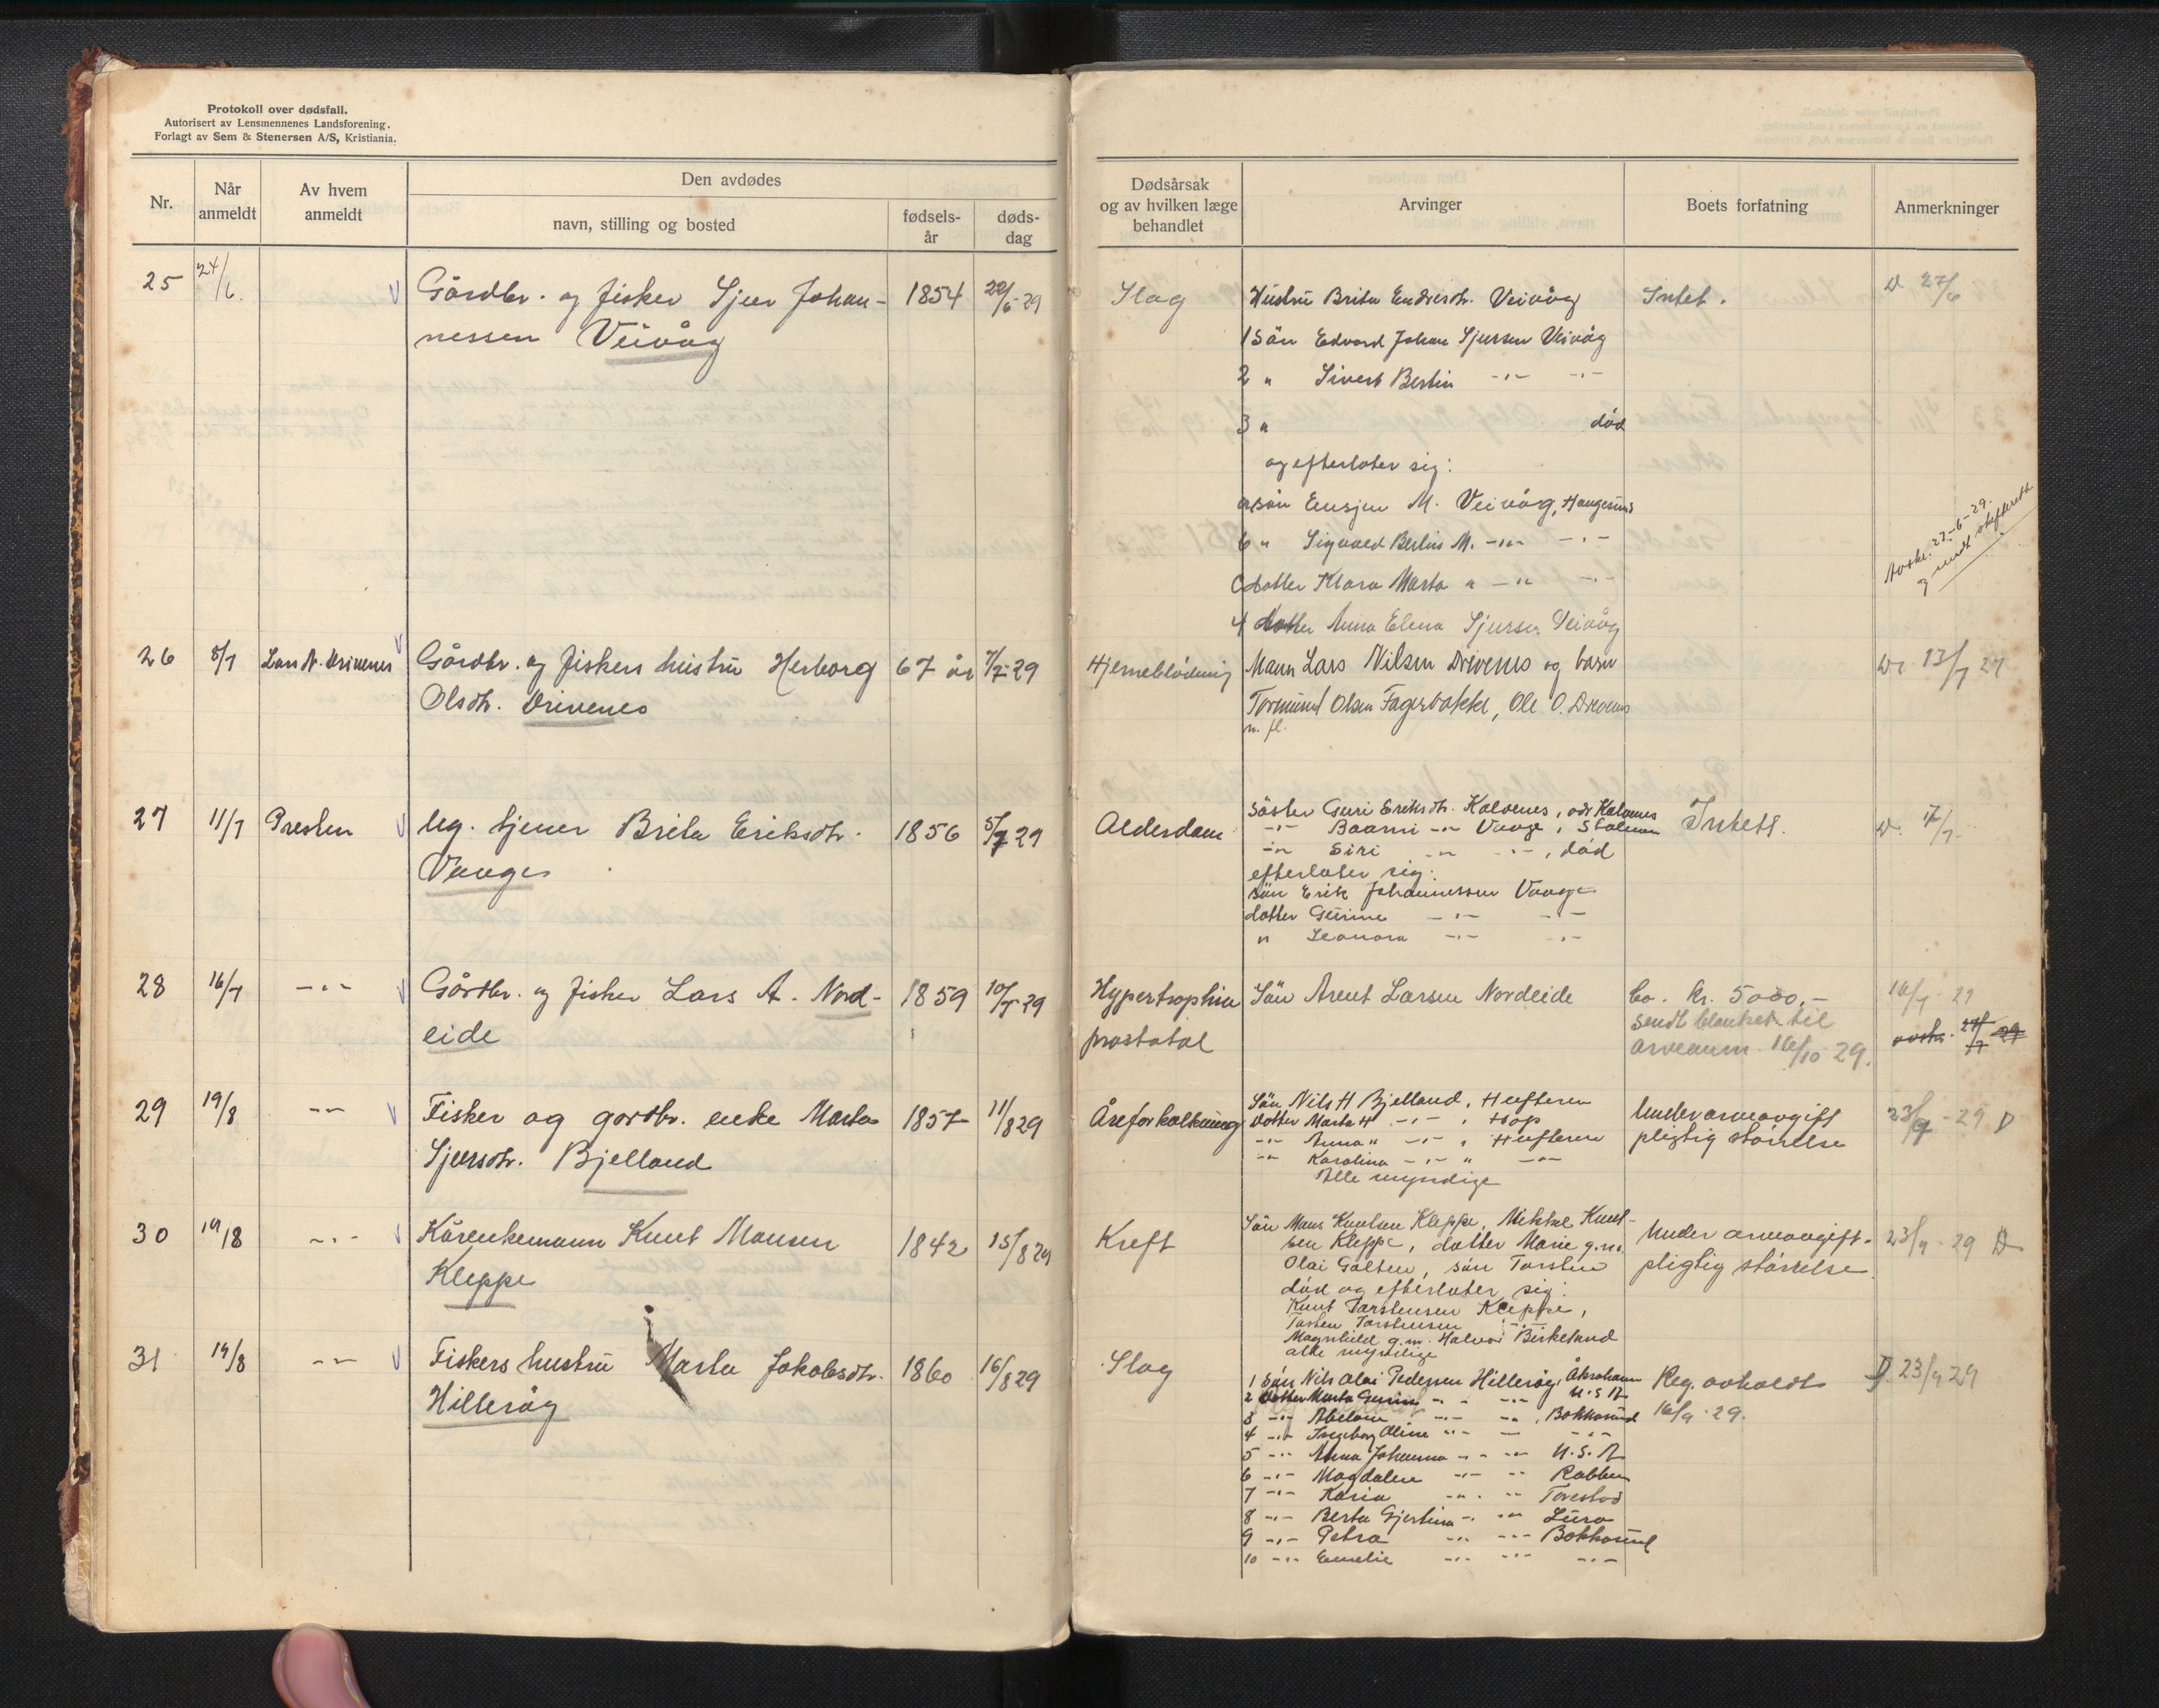 Protokoll over dødsfall.
Autorisert av Lensmennenes Landsforening.
Forlagt av Sem & Stenersen A/S, Kristiania.
Nr.
Når anmeldt
Av hvem anmeldt
Den avdødes
navn, stilling og bosted
fødselsår
dødsdag
Dødsårsak og av hvilken læge behandlet
Arvinger
Boets forfatning
Anmerkninger
25 24/6. Gårdbr. og fisker Sjur Johan- 1854 22/6-29 Slag Hustru Brita Endresdtr. Veivåg Intet. D 27/6
nessen Veivåg
1 Sön Edvard Johan Sjursen Veivåg
2 " Sivert Bertin -"- -"-
3 " död
og efterlater sig:
a sön M. Veivåg, Haugesund
b " Sigvald Bertin M. -"- -"-
c datter Klara Marta " -"- -"-
27-6-29.
4 datter Anna Elena Sjursen Veivåg
26 8/7 Lars N. Drivenes Gårdbr. og fiskers hustru Herborg 67 år 7/7-29 Hjerneblödning Mann Lars Nilsen Drivenes og barn 13/7 29
Olsdtr. Drivenes
Tormund Olsen Fagerbakke, Ole O. Drivenes
m. fl.
27 11/7 Presten leg. tjener Brita Eriksdtr. 1856 5/7 29 Alderdom Söster Guri Eriksdtr. Kalvenes, adr Kalvenes Intet. D. 17/7-
Vaage
-"- Baarni -"- Vaage, Stolmen
-"- Siri -"- -"-, död
efterlater sig:
sön Erik Johannessen Vaage
datter Gurine -"- -"-
" Leonora -"- -"-
28 16/7 -"- Gårdbr. og fisker Lars A. Nord- 1859 10/7-29 Hypertrophia Sön Arent Larsen Nordeide bo. kr. 5000,- 16/7 29
eide
prostatal
sendt blanket til
arveanm. 16/10 29.
29 19/8 -"- Fisker og gardbr. enke Marta 1857 11/8 29 Åreforkalkning Sön Nils H Bjelland, Huftern Under arveavgift 23/9-29 D
Sjursdtr. Bjelland
Datter Marta H -"-, Hop pligtig störrelse
-"- Anna " -"- " Huftern
-"- Karolina -"- " -"-
Alle myndige
30 19/8 -"- Kårenkemann Knut Monsen 1842 15/8 29 Kreft Sön Mons Knutsen Kleppe, Mikkel Knut- Under arveavgift- 23/9-29 D
Kleppe
sen Kleppe, datter Marie g.m.
Olai Golten, sön Torstein pligtig störrelse.
död og efterlater sig:
Knut Torstensen Kleppe,
Torsten Torstensen -"-
Magnhild g.m. Halvor Birkeland
alle myndige
31 19/8 -"- Fiskers hustru Marta Jakobsdtr. 1860 16/8 29 Slag 1 Sön Nils Olai Pedersen Hillerög, Åkrehamn Reg. avholdt D. 23/9 29
Hillerög
16/9-29.
2 Datter Marta Gurine -"- -"- U.S.A.
3 -"- Abelone -"- -"-, Bekkasund
4 -"- Ingeborg Oline -"- -"- -"-
5 -"- Anna Johanna -"- -"- U.S.A
6 -"- Magdalene -"- -"- Rabben
7 -"- Karia -"- -"- Torestad
8 -"- Berta Gjertina -"- -"- Lura
9 -"- Petra -"- -"- Bekkasund
10 -"- Emelie -"- -"- -"-